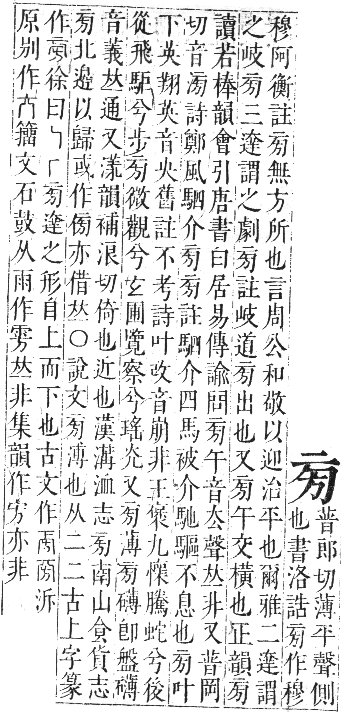 㫄
普郎切薄平聲側
也書洛誥㫄作穆
穆阿衡註㫄無方所也言周公和敬以迎治平也爾雅二達謂
之岐㫄三達謂之劇㫄註岐道㫄出也又㫄午交橫也正韻㫄
讀若棒韻會引唐書白居易傳諭問㫄午音厺聲𠀤非又普岡
切音滂詩鄭風駟介㫄㫄註駟介四馬被介馳驅不息也㫄叶
下英翔英音央舊註不考詩叶改音崩非王褒九懷騰蛇兮後
從飛駏兮步㫄微觀兮玄圃覽察兮瑤光又㫄薄㫄礴卽盤礴
音義𠀤通又漾韻補浪切倚也近也漢溝洫志㫄南山食貨志
㫄北邊以歸或作傍亦借𠀤○說文㫄溥也从二二古上字篆
作徐曰㫄達之形自上而下也古文作泝
原別作籀文石鼓从雨作雱𠀤非集韻作亦非